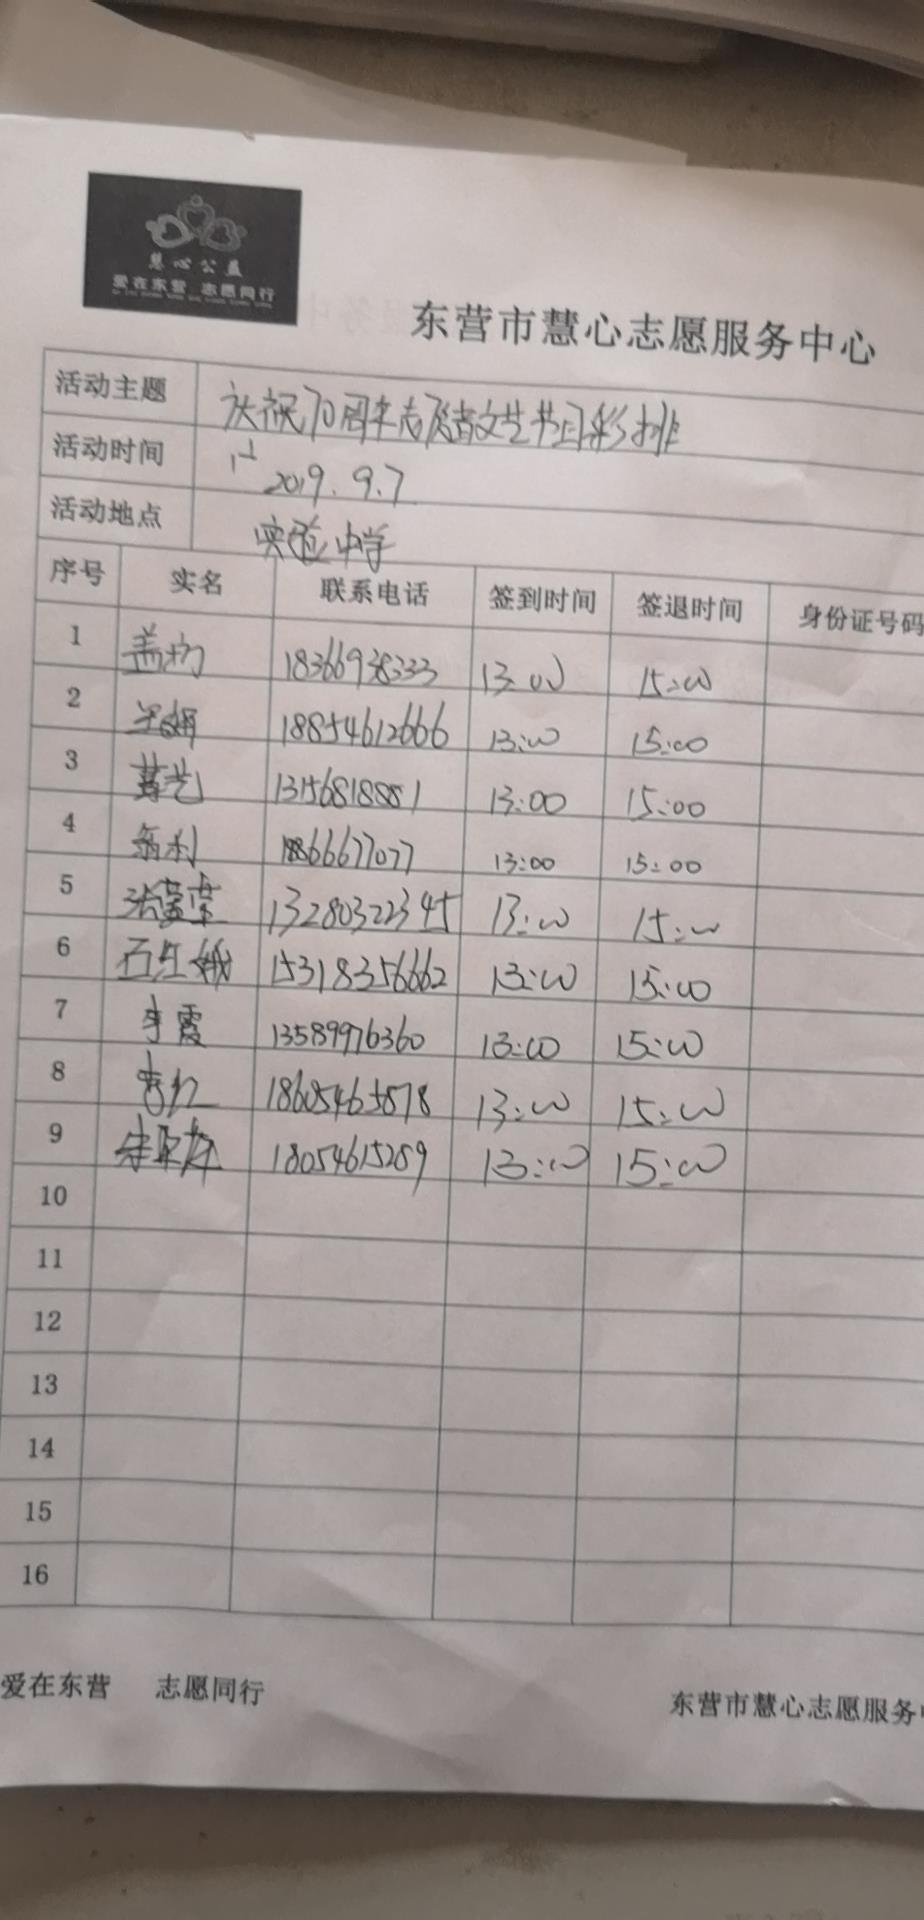 慧心公益
爱在东营 志愿同行
东营市慧心志愿服务中心
活动主题 庆祝70周年志愿者文艺节目彩排
活动时间 2019.9.7
活动地点 实验中学
序号 实名 联系电话 签到时间 签退时间 身份证号码
1 18366938333 13:00 15:00
2 18854612666 13:00 15:00
3 13156818881 13:00 15:00
4 18866677077 13:00 15:00
5 13280322345 13:00 15:00
6 15318356662 13:00 15:00
7 李霞 13589976360 13:00 15:00
8 13:00 15:00
9 18054615259 13:00 15:00
10
11
12
13
14
15
16
爱在东营 志愿同行 东营市慧心志愿服务